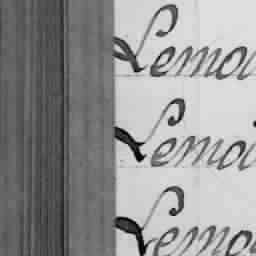 Lemoi
Lemoi
Lemo